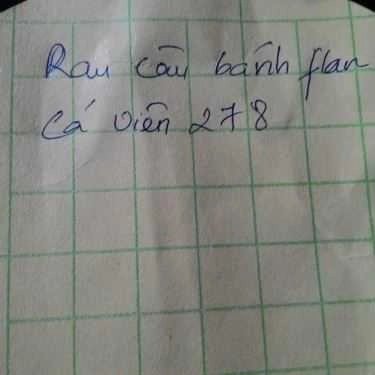 Rau câu bánh flan
Cá viên 278